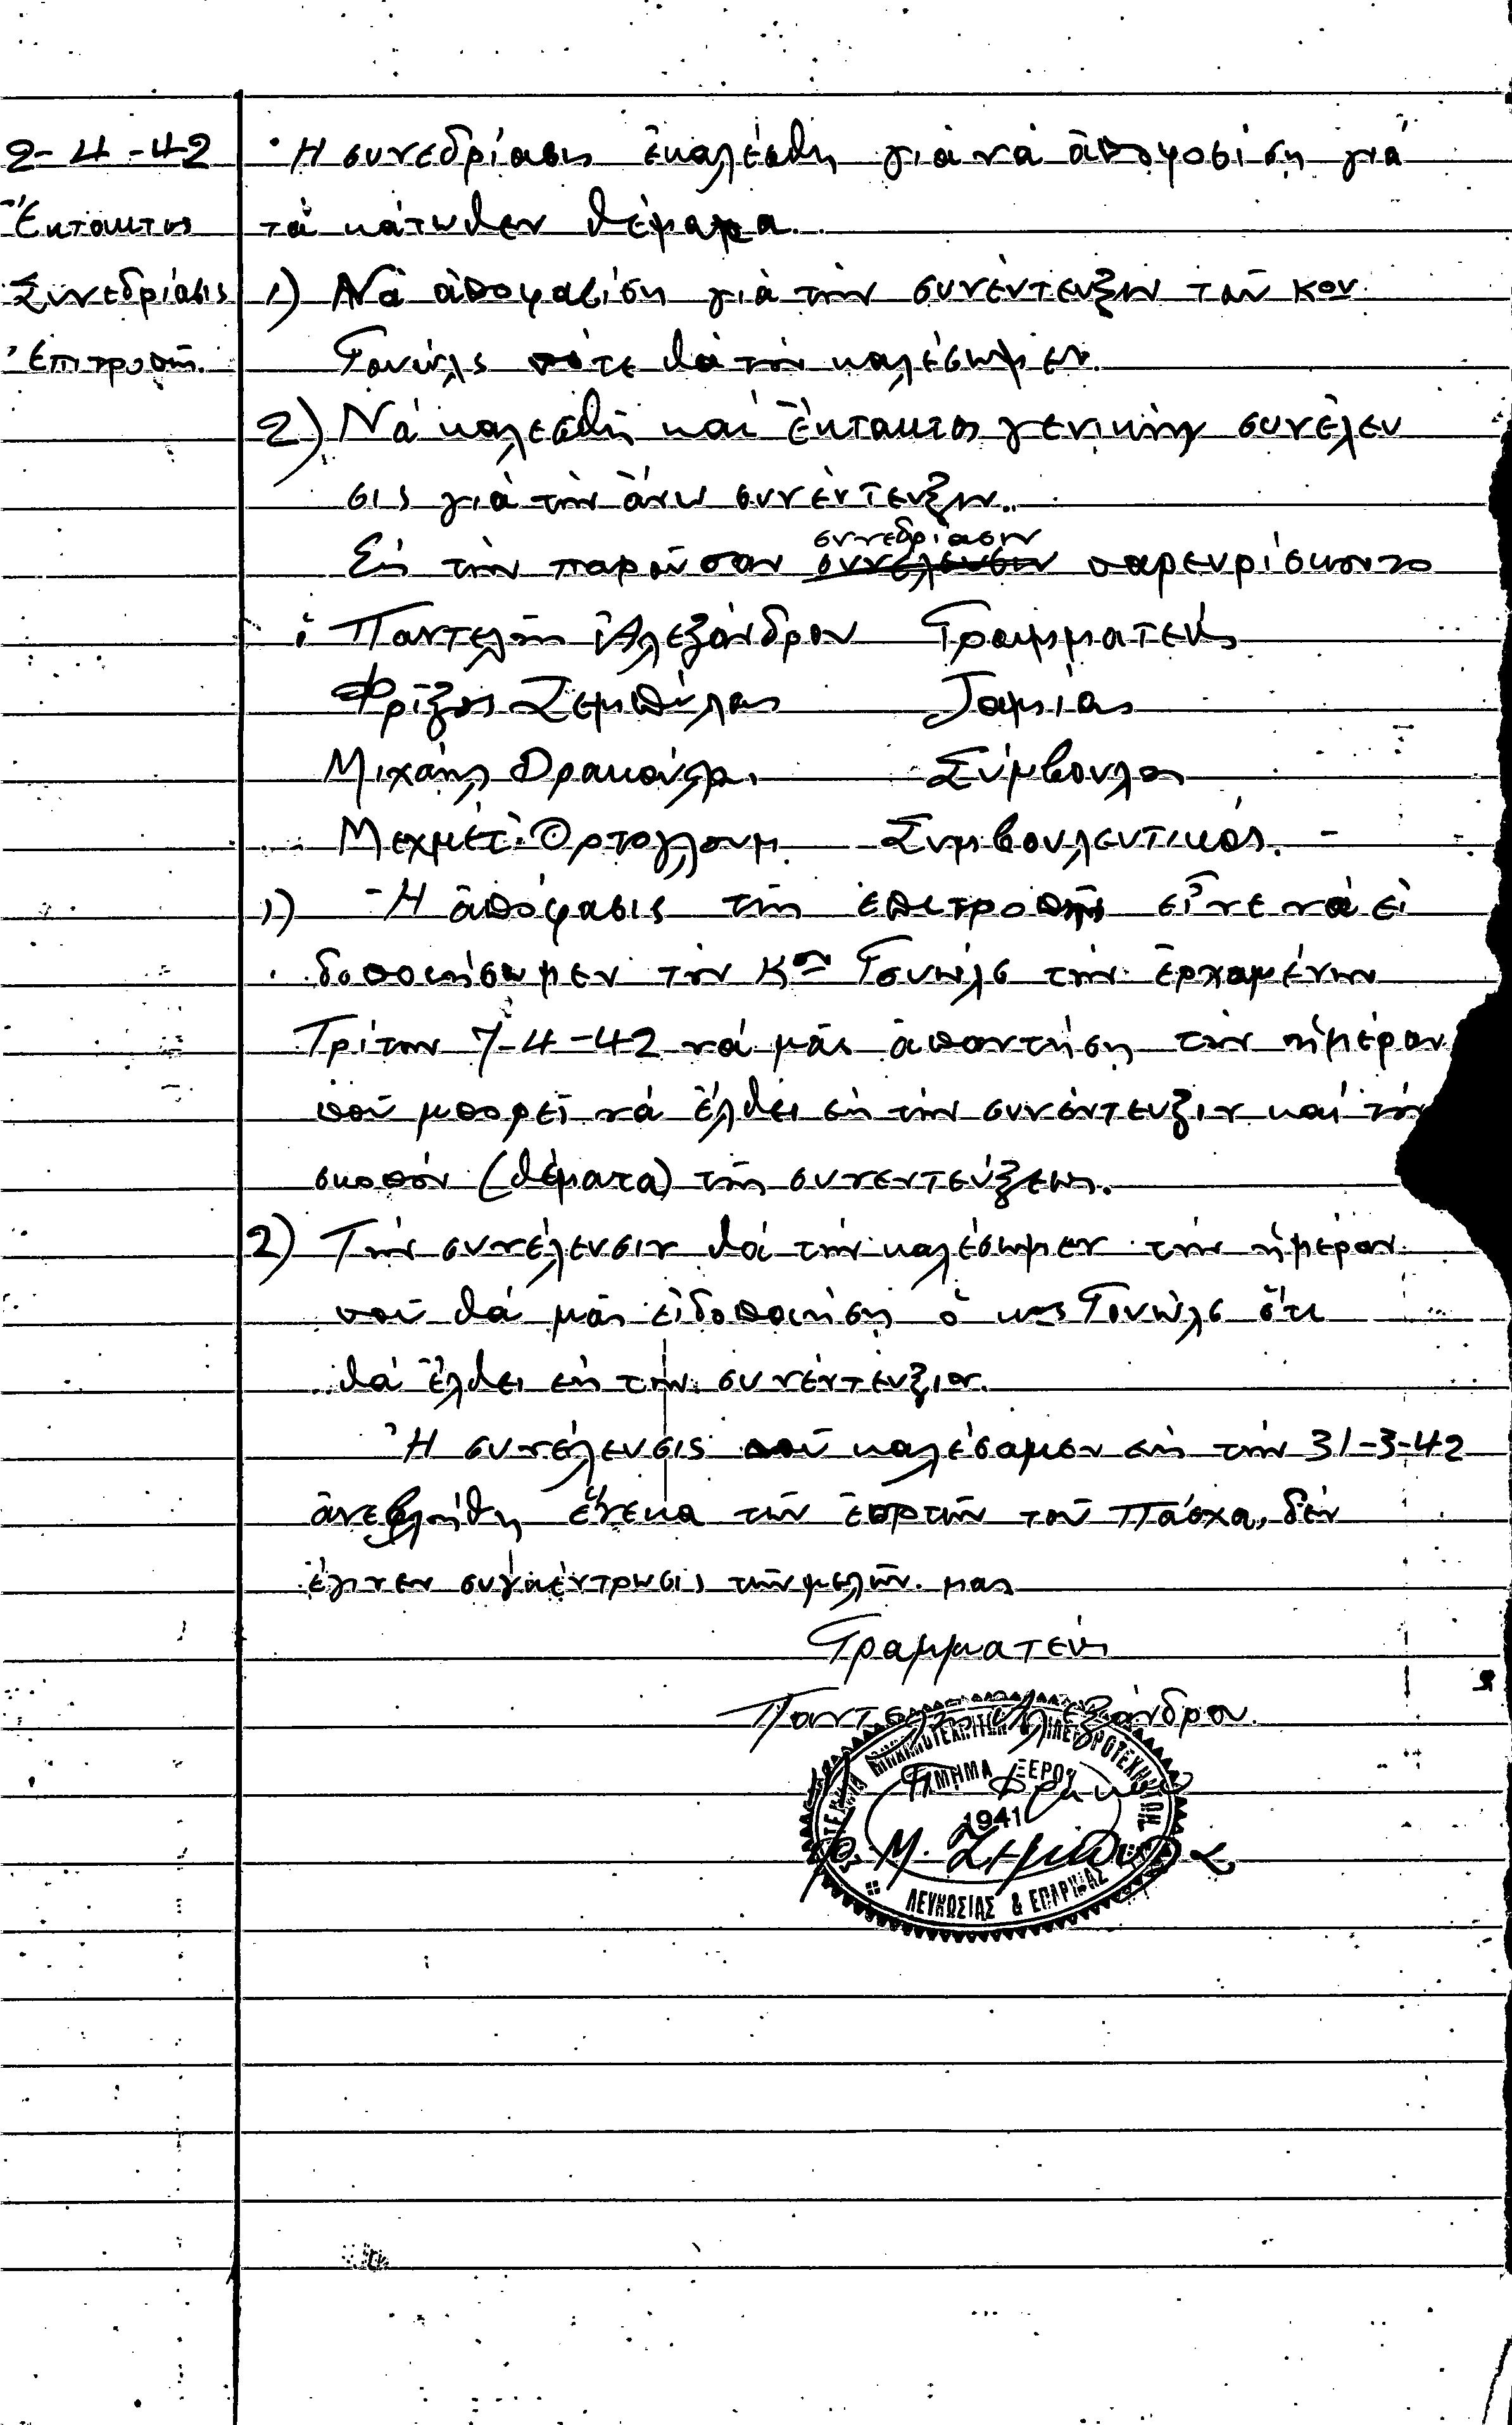 2-4-42
Ἔκτακτος
Συνεδρίασις
Ἐπιτροπῆς.
Ἡ συνεδρίασις ἐκαλέσθη γιὰ νὰ ἀποφασίση γιὰ
τὰ κάτωθεν θέματα.
1) Νὰ ἀποφασίση γιὰ τὴν συνέντευξιν τοῦ κου
Γουώλς πότε θὰ τὴν καλέσωμεν.
2) Νὰ καλεσθῆ καὶ ἔκτακτος γενικὴ συνέλευ
σις γιὰ τὴν ἄνω συνέντευξιν.
συνεδρίασιν
Εἰς τὴν παροῦσαν συνέλευσιν παρευρίσκοντο
Παντελῆς Ἀλεξάνδρου Γραμματεὺς
Φρίξος Ζεμπύλας Ταμίας
Μιχαὴλ Δρακούλα. Σύμβουλος
Μεχμὲτ Ὀρτογλουμ. Συμβουλευτικός. -
1) Ἡ ἀπόφασις τῆς ἐπιτροπῆς εἶνε νὰ εἰ
δοποιήσωμεν τὸν Κον Γουώλς τὴν ἐρχομένην
Τρίτην 7-4-42 νὰ μᾶς ἀπαντήση τὴν ἡμέραν
ποῦ μπορεῖ νὰ ἔλθει εἰς τὴν συνέντευξιν καὶ τὸν
σκοπὸν (θέματα) τῆς συνεντεύξεως.
2) Τὴν συνέλευσιν θὰ τὴν καλέσωμεν τὴν ἡμέραν
ποῦ θὰ μᾶς εἰδοποιήση ὁ κος Γουώλς ὅτι
θὰ ἔλθει εἰς τὴν συνέντευξιν.
Ἡ συνέλευσις ποῦ καλέσαμεν εἰς τὴν 31-3-42
ἀνεβλήθη ἕνεκα τῶν ἑορτῶν τοῦ Πάσχα, δὲν
ἔγινεν συγκέντρωσις τῶν μελῶν μας
Γραμματεὺς
Παντελῆς Ἀλεξάνδρου.
ΜΗΧΑΝΟΤΕΧΝΙΤΩΝ & ΗΛΕΚΤΡΟΤΕΧΝΙΤΩΝ
ΤΜΗΜΑ ΞΕΡΟΥ
1941
ΛΕΥΚΩΣΙΑΣ & ΕΠΑΡΧΙΑΣ